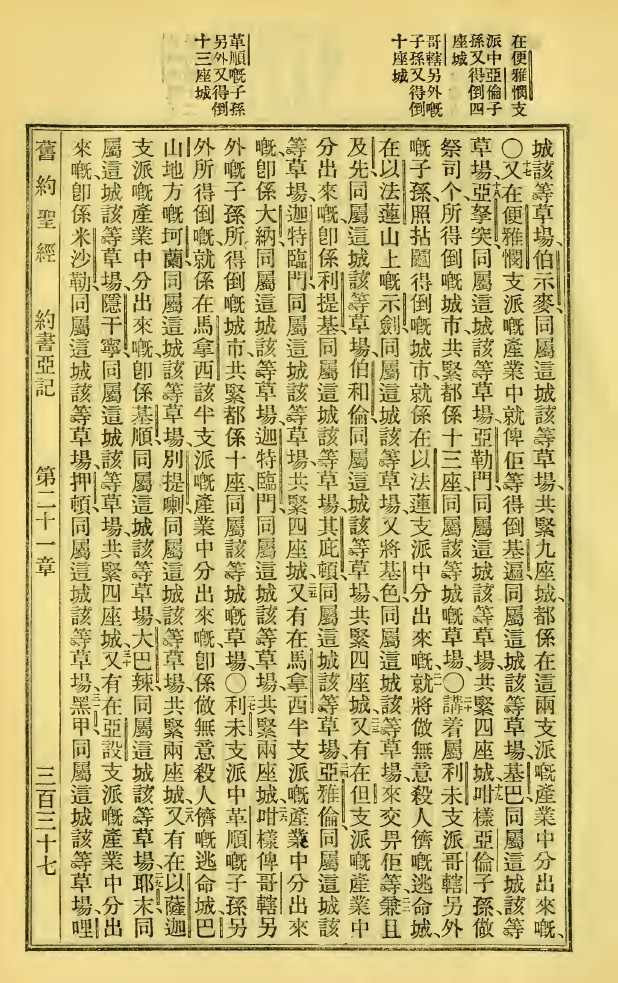 在便雅憫支
派中亞倫子
孫又得倒四
座城
哥轄另外嘅
子孫又得倒
十座城
革順嘅子孫
另外又得倒
十三座城
城該等草場、伯示麥同屬這城該等草場、共緊九座城、都係在這兩支派嘅產業中分出來嘅、
〇十七又在便雅憫支派嘅產業中就俾佢等得倒基遍同屬這城該等草場、基巴同屬這城該等
草場、十八亞拏突同屬這城該等草場、亞勒門同屬這城該等草場、共緊四座城、十九咁樣亞倫子孫做
祭司个所得倒嘅城市共緊都係十三座、同屬該等城嘅草場、〇二十講着屬利未支派哥轄另外
嘅子孫、照拈鬮得倒嘅城市就係在以法蓮支派中分出來嘅、二一就將做無意殺人儕嘅逃命城、
在以法蓮山上嘅示劍同屬這城該等草場、又將基色同屬這城該等草場、來交畀佢等、二二兼且
及先同屬這城該等草場、伯和倫同屬這城該等草場、共緊四座城、二三又有在但支派嘅產業中
分出來嘅、卽係利提基同屬這城該等草場、其庇頓同屬這城該等草場、二四亞雅倫同屬這城該
等草場、迦特臨門同屬這城該等草場、共緊四座城、二五又有在馬拿西半支派嘅產業中分出來
嘅、卽係大納同屬這城該等草場、迦特臨門同屬這城該等草場、共緊兩座城、二六咁樣俾哥轄另
外嘅子孫所得倒嘅城市、共緊都係十座、同屬該等城嘅草場、〇二七利未支派中革順嘅子孫、另
外所得倒嘅、就係在馬拿西該半支派嘅產業中分出來嘅、卽係做無意殺人儕嘅逃命城、巴
山地方嘅坷蘭同屬這城該等草場、別提喇同屬這城該等草場、共緊兩座城、二八又有在以薩迦
支派嘅產業中分出來嘅、卽係基順同屬這城該等草場、大巴辣同屬這城該等草場、二九耶末同
屬這城該等草場、隱干寧同屬這城該等草場、共緊四座城、三十又有在亞設支派嘅產業中分出
來嘅、卽係米沙勒同屬這城該等草場、押頓同屬這城該等草場、三一黑甲同屬這城該等草場、哩
舊約聖經 約書亞記 第二十一章 三百三十七